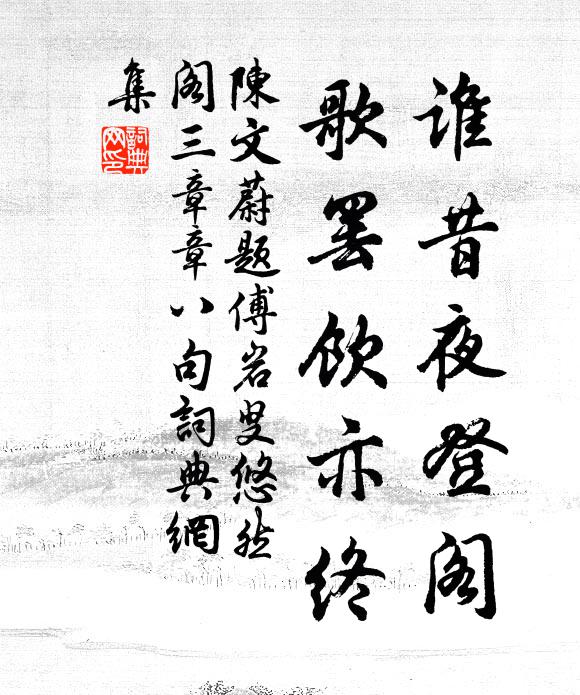 誰昔夜登閣
歌罷飲亦終
陳文蔚題傅岩叟悠然
閣三章章八句詞典網
集
詞典
网印